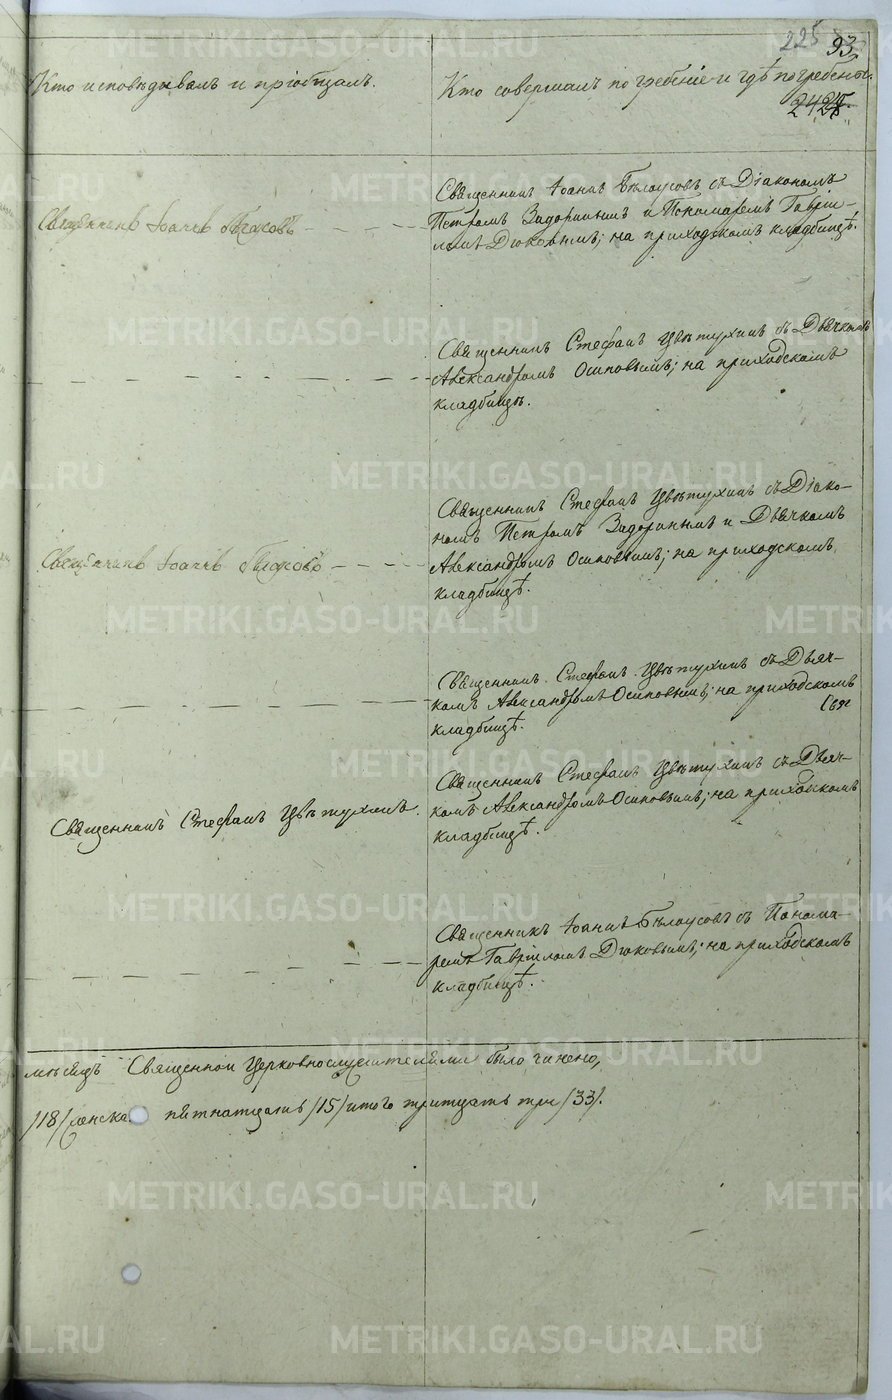 225 93
Кто исповѣдывалъ и пріобщалъ.
Кто совершалъ погребеніе и гдѣ погребены.
Священникъ Іоаннъ Бѣлоусовъ съ Діакономъ
Петромъ Задоринымъ и Пономаремъ Гаврі-
ломъ Дюковымъ; на приходскомъ кладбищѣ.
Священникъ Іоаннъ
Священникъ Стефанъ Цвѣтухинъ съ Дьячкомъ
Александромъ Осиповымъ; на приходскомъ
кладбищѣ.
Священникъ Стефанъ Цвѣтухинъ съ Діако-
номъ Петромъ Задоринымъ и Дьячкомъ
Александромъ Осиповымъ; на приходскомъ
кладбищѣ.
Священникъ Іоаннъ
Священникъ Стефанъ Цвѣтухинъ съ Дьяч-
комъ Александромъ Осиповымъ; на приходскомъ
кладбищѣ.
Священникъ Стефанъ Цвѣтухинъ съ Дьяч-
комъ Александромъ Осиповымъ; на приходскомъ
кладбищѣ.
Священникъ Стефанъ Цвѣтухинъ.
Священникъ Іоаннъ Бѣлоусовъ съ Понома-
ремъ Гавріиломъ Дюковымъ; на приходскомъ
кладбищѣ.
мѣсяцъ Священно и Церковнослужителями было чинено,
/18/ женска пятнатцать /15/ итого тритцать три /33/.
METRIKI.GASO-URAL.RU